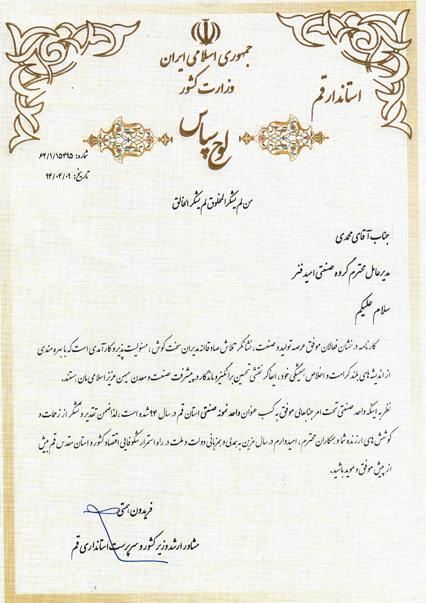 جمهوری اسلامی ایران
وزارت کشور
استاندار قم
لوح سپاس
شماره: ۶۲/۱/۱۵۴۹۵
تاریخ: ۹۴/۰۴/۰۹
من لم یشکر المخلوق لم یشکر الخالق
جناب آقای محمدی
مدیرعامل محترم گروه صنعتی امید فنر
سلام علیکم
کارنامه درخشان فعالان موفق عرصه تولید و صنعت، نشانگر تلاش صادقانه مدیران سخت کوش، مسئولیت پذیر و کارآمدی است که با بهره مندی
از اندیشه های بلند کرامت و اخلاص همیشگی خود، ایفاگر نقشی تحسین برانگیز و ماندگار در پیشرفت صنعت و معدن میهن عزیز اسلامی مان هستند.
نظر به اینکه واحد صنعتی تحت امر جنابعالی موفق به کسب عنوان واحد نمونه صنعتی استان قم در سال ۹۴ شده است، لذا ضمن تقدیر و تشکر از زحمات و
کوشش های ارزنده شما و همکاران محترم، امیدوارم در سال مزین به همدلی و همزبانی دولت و ملت در راه استمرار شکوفایی اقتصاد کشور و استان مقدس قم بیش
از پیش موفق و موید باشید.
فریدون همتی
مشاور ارشد وزیر کشور و سرپرست استانداری قم